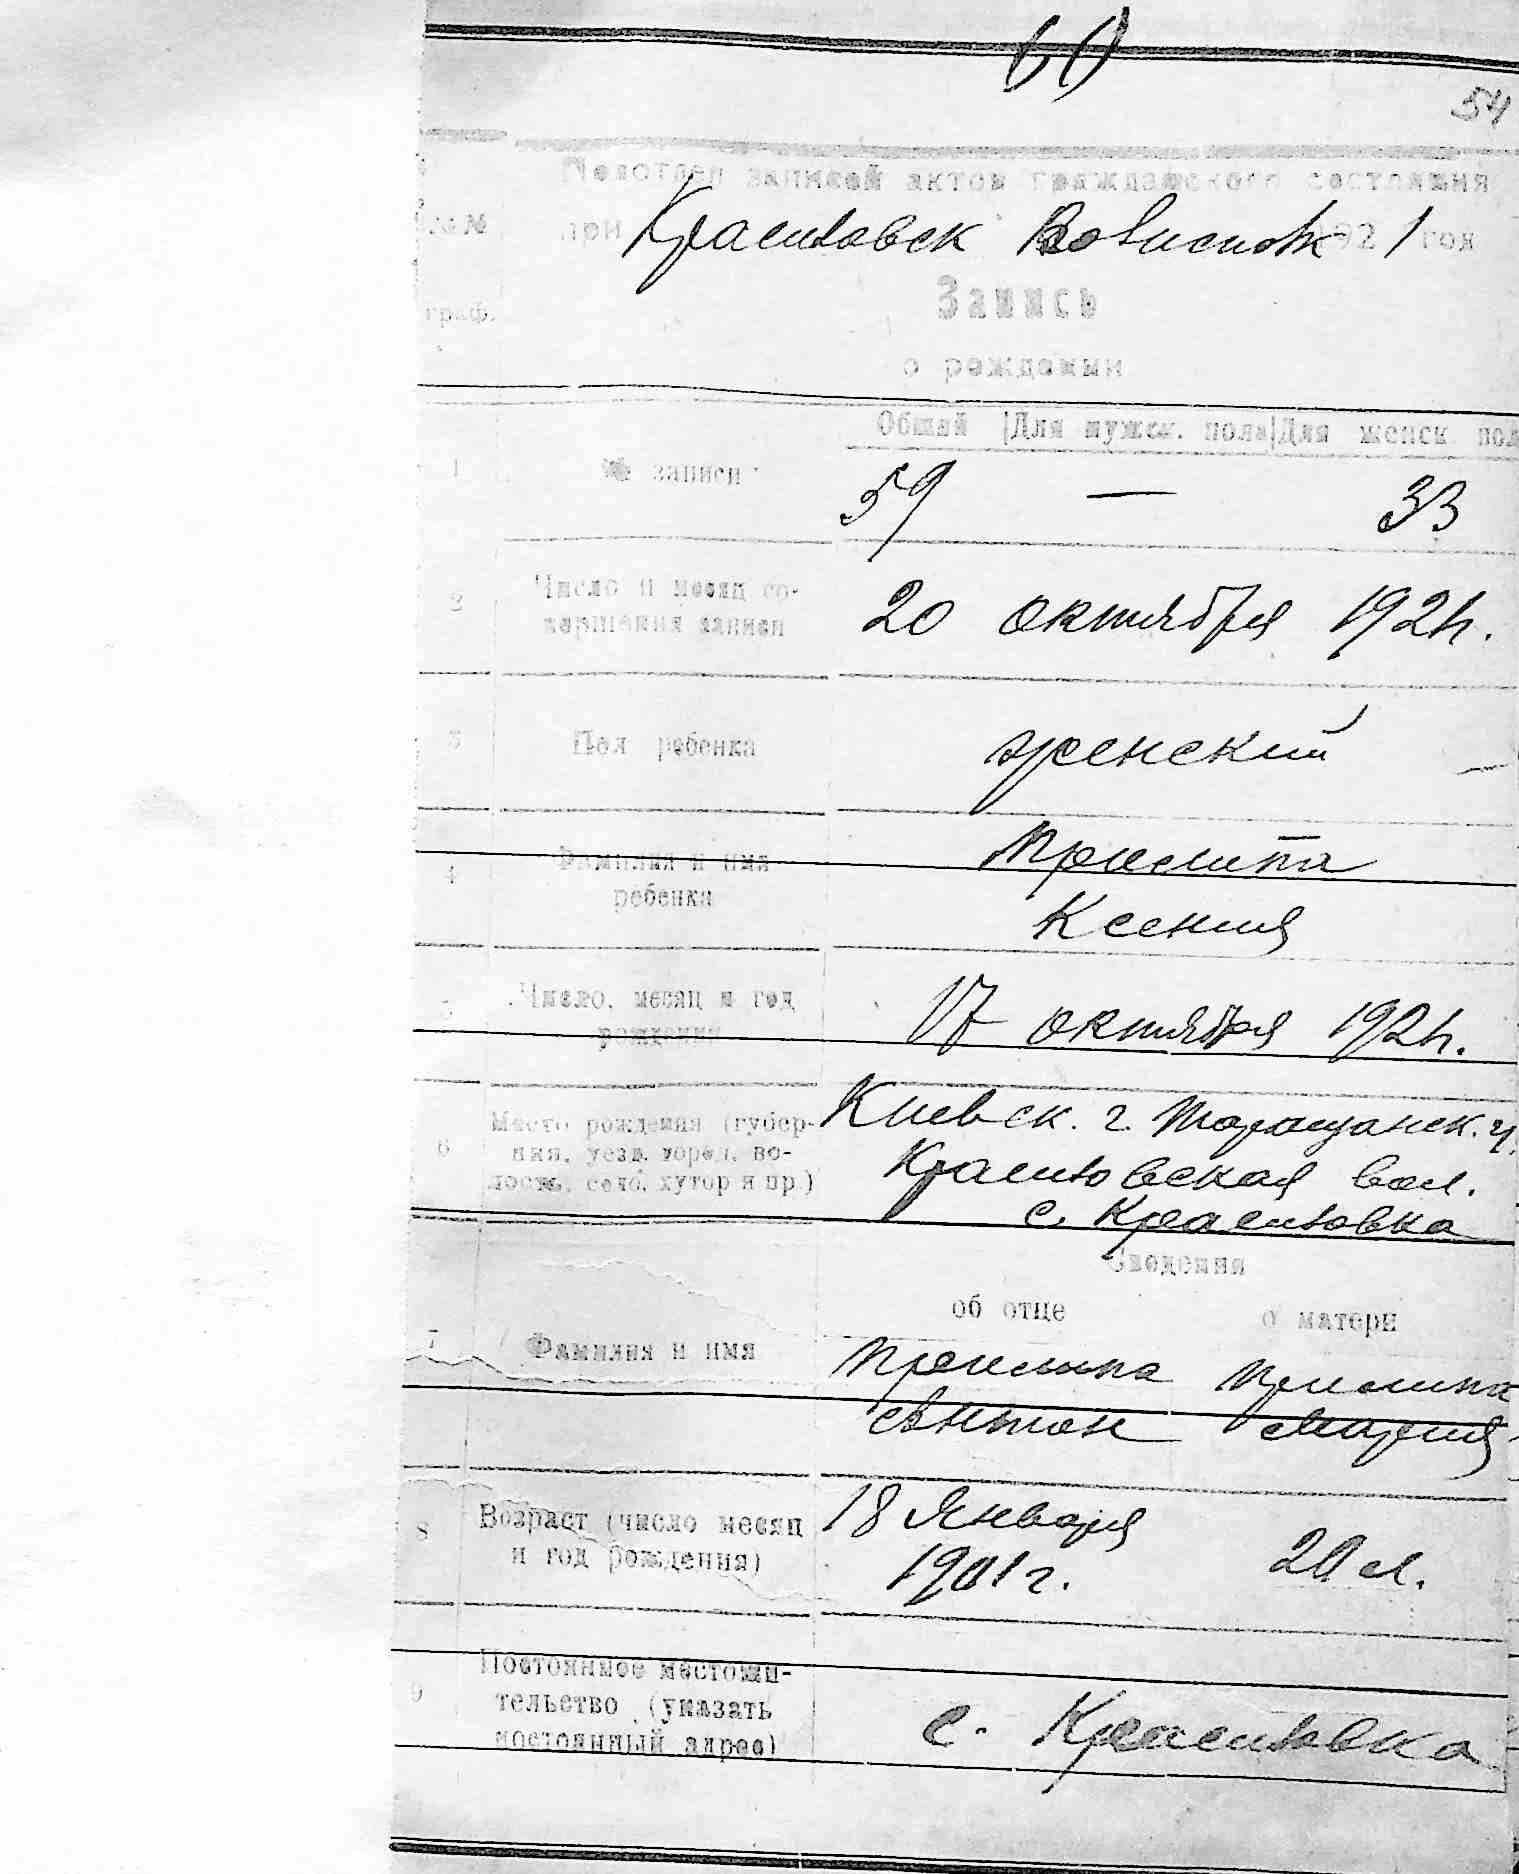 60
54
Подотдел записей актов гражданского состояния
при Волисполк 1921 год
Запись
о рождении
граф.
Общий Для мужск. пола Для женск. пол
1 № записи 59 — 33
2 Число и месяц со-
вершения записи 20 октября 1921г.
3 Пол ребенка женский
4 Фамилия и имя
ребенка Ксения
5 Число, месяц и год
рождения 17 октября 1921г.
6 Место рождения (губер-
ния, уезд, город, во-
лость, село, хутор и пр.) Киевск. г. Таращанск. у.
вол.
с.
Сведения
об отце о матери
7 Фамилия и имя
Антон Мария
8 Возраст (число месяц
и год рождения) 18 Января
1901г. 20 л.
9 Постоянное местожи-
тельство (указать
постоянный адрес) с.